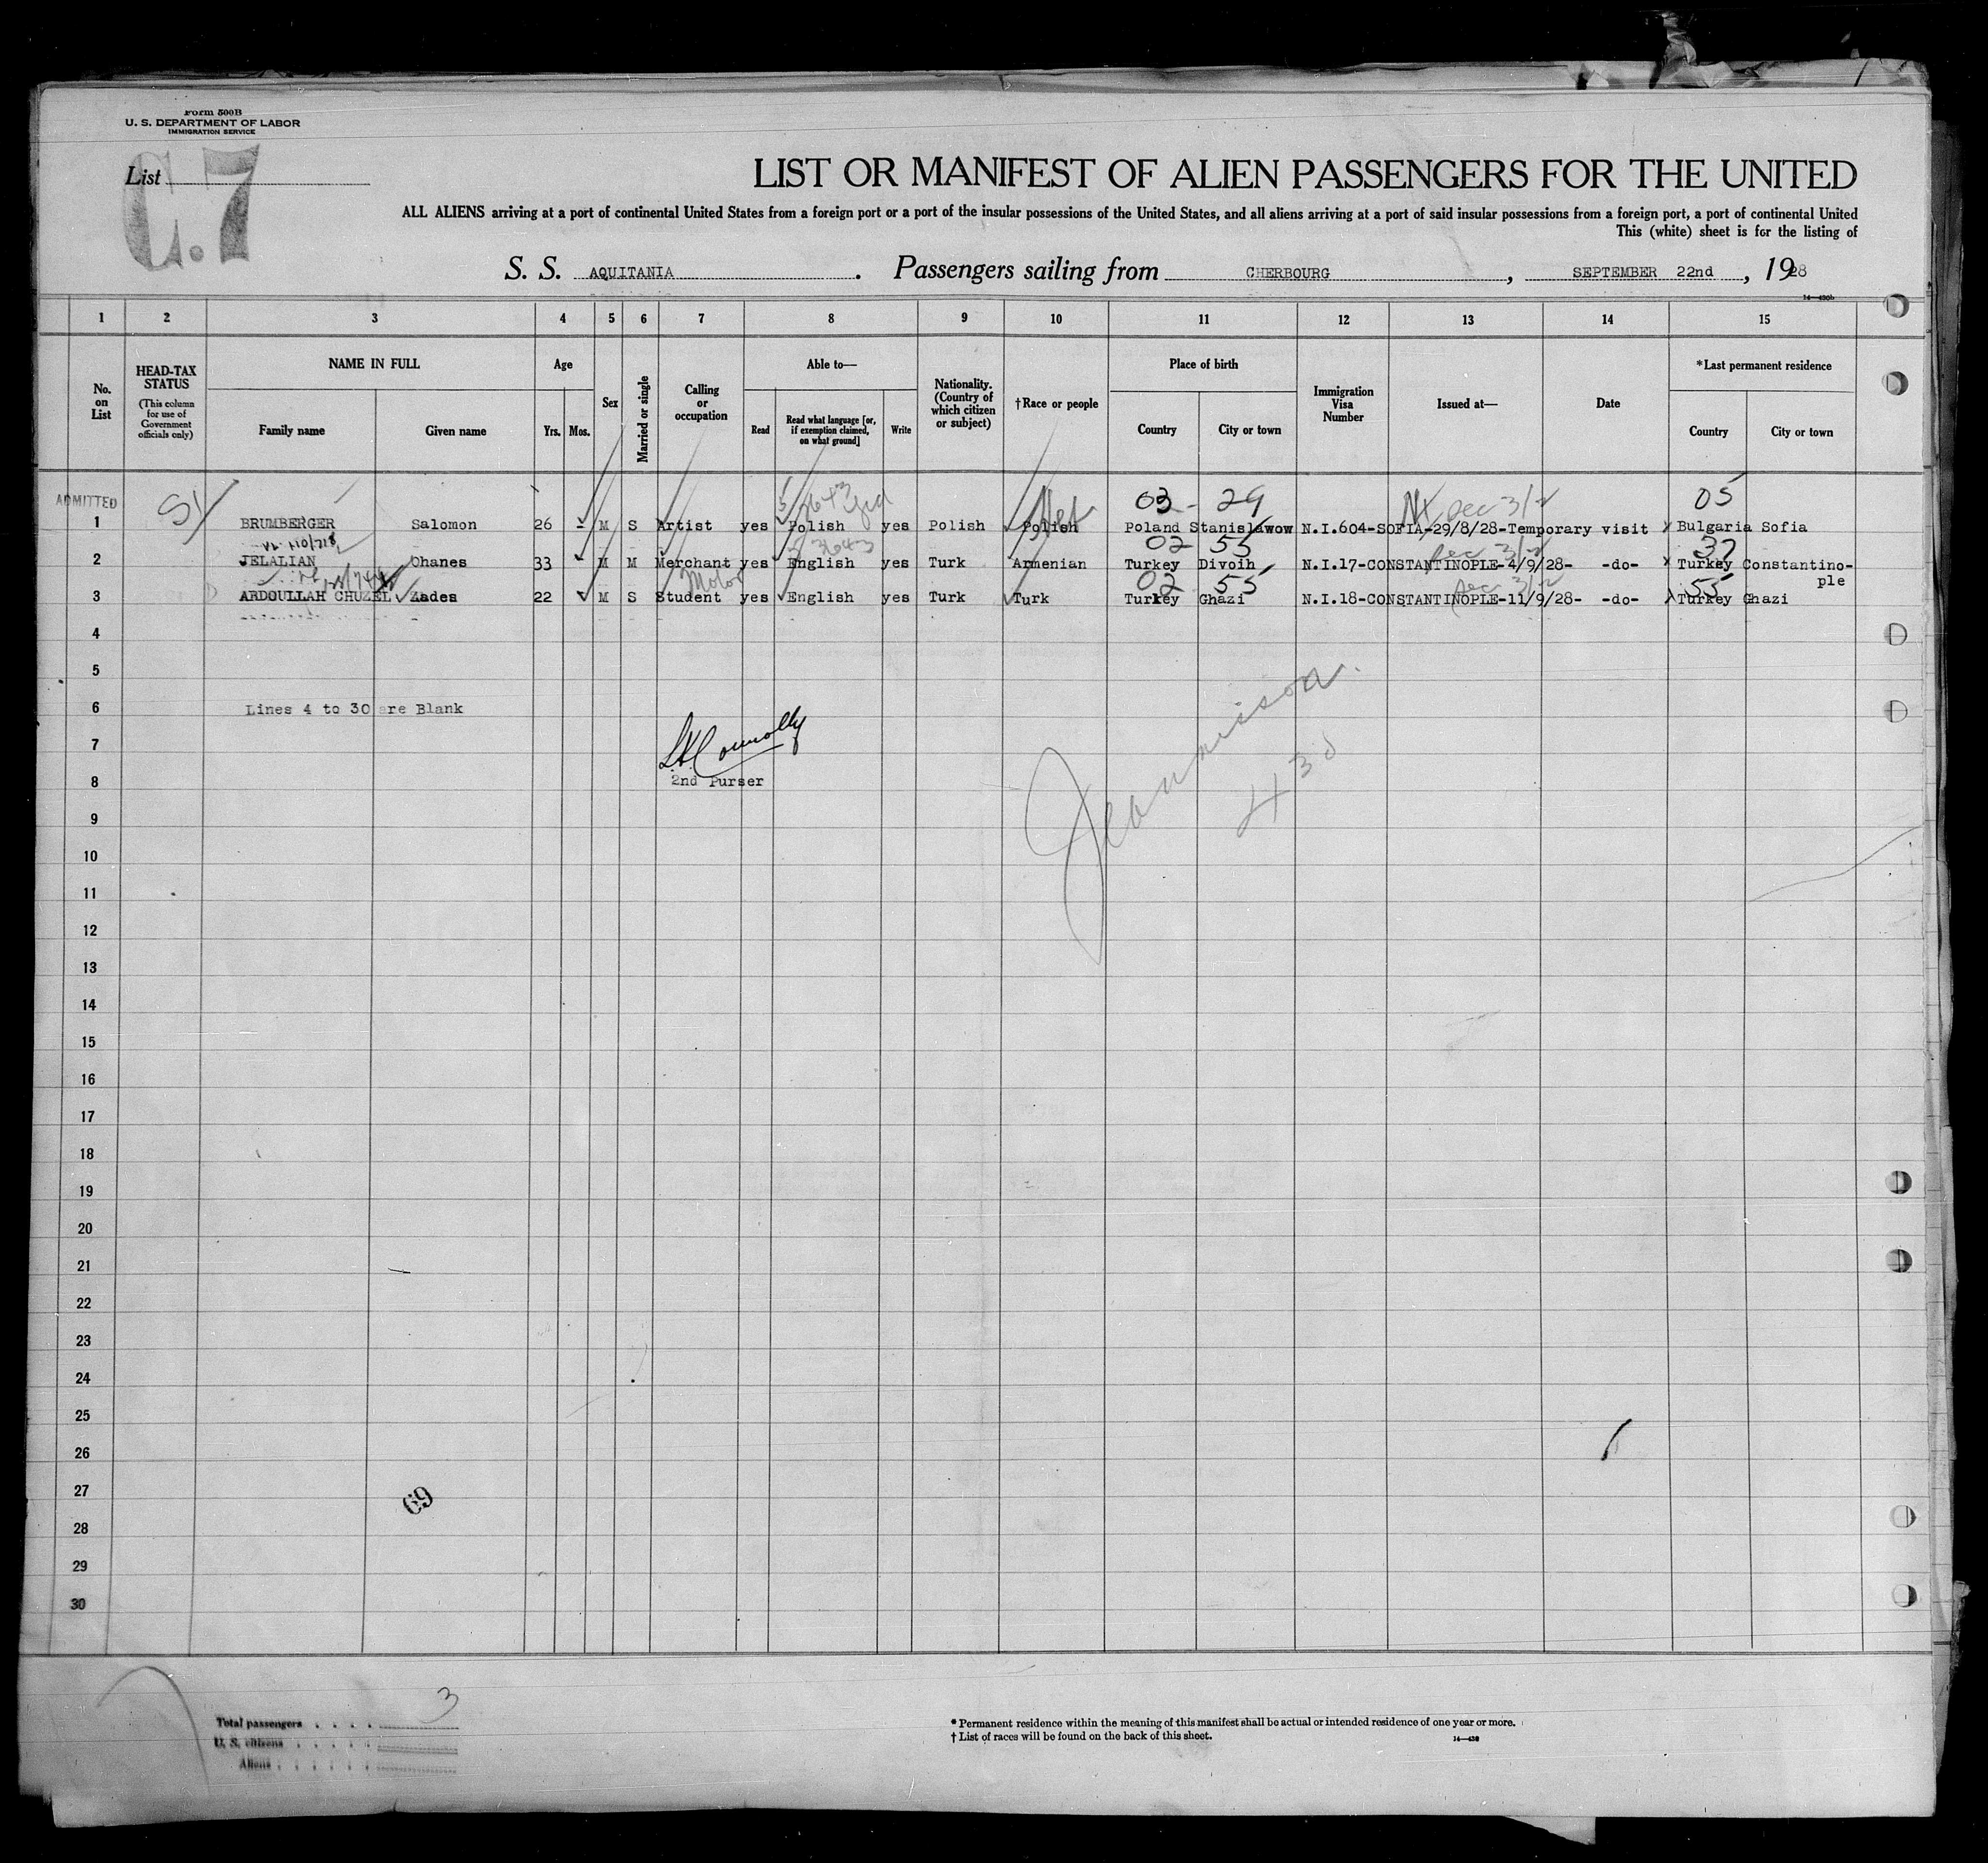 Form 500B
U. S. DEPARTMENT OF LABOR
IMMIGRATION SERVICE
List
C.7
LIST OR MANIFEST OF ALIEN PASSENGERS FOR THE UNITED
ALL ALIENS arriving at a port of continental United States from a foreign port or a port of the insular possessions of the United States, and all aliens arriving at a port of said insular possessions from a foreign port, a port of continental United
This (white) sheet is for the listing of
S. S. AQUITANIA. Passengers sailing from CHERBOURG, SEPTEMBER 22nd, 1928
14—430b
1 2 3 4 5 6 7 8 9 10 11 12 13 14 15
No. on List
HEAD-TAX STATUS
(This column for use of Government officials only)
NAME IN FULL
Family name Given name
Age
Yrs. Mos.
Sex
Married or single
Calling or occupation
Able to—
Read
Read what language [or, if exemption claimed, on what ground]
Write
Nationality. (Country of which citizen or subject)
†Race or people
Place of birth
Country City or town
Immigration Visa Number
Issued at—
Date
*Last permanent residence
Country City or town
ADMITTED
03 - 29 05
1 BRUMBERGER Salomon 26 - M S Artist yes Polish yes Polish Polish Poland Stanislawow N.I.604-SOFIA-29/8/28-Temporary visit Bulgaria Sofia
02 55 37
2 JELALIAN Ohanes 33 M M Merchant yes English yes Turk Armenian Turkey Divoih N.I.17-CONSTANTINOPLE-4/9/28- -do- Turkey Constantino-
ple
Motor 02 55 55
3 ARDOULLAH CHUZEL Zades 22 M S Student yes English yes Turk Turk Turkey Ghazi N.I.18-CONSTANTINOPLE-11/9/28- -do- Turkey Ghazi
4
5
6 Lines 4 to 30 are Blank
7 Connolly
8 2nd Purser
430
9
10
11
12
13
14
15
16
17
18
19
20
21
22
23
24
25
26
27
69
28
29
30
Total passengers . . . . 3
U. S. citizens . . . . .
Aliens . . . . . .
* Permanent residence within the meaning of this manifest shall be actual or intended residence of one year or more.
† List of races will be found on the back of this sheet.
14—430